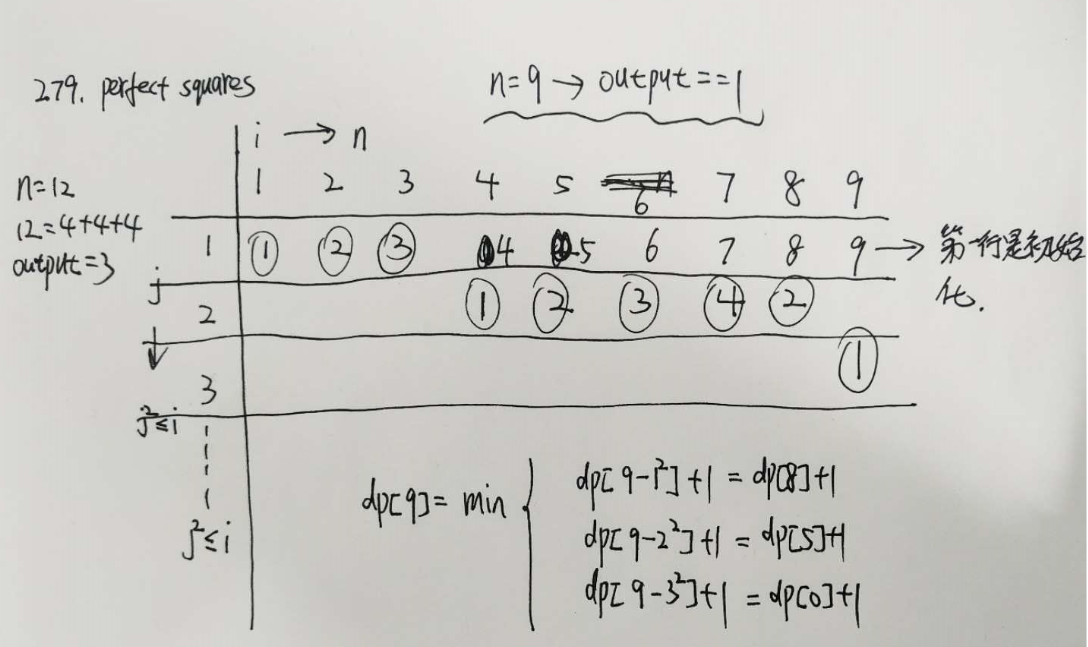 279. perfect squares
n=9 → output==1
i → n
n=12
12=4+4+4
output=3
1 2 3 4 5 6 7 8 9
1 ① ② ③ 4 5 6 7 8 9 → 第一行是初始
化.
j
2 ① ② ③ ④ ②
3 ①
j²≤i
j²≤i
dp[9]= min
dp[9-1²]+1 = dp[8]+1
dp[9-2²]+1 = dp[5]+1
dp[9-3²]+1 = dp[0]+1